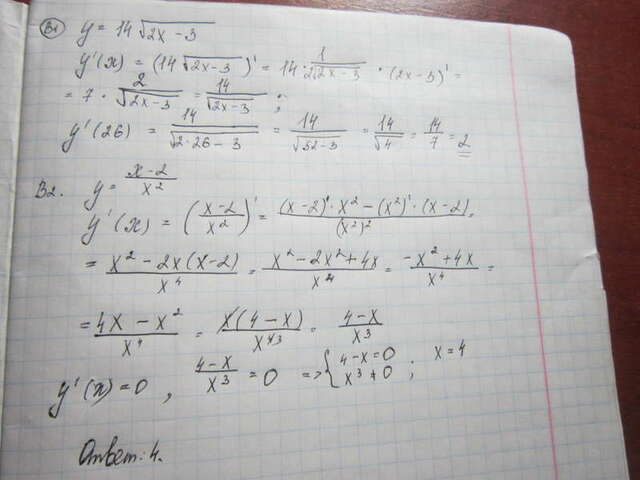 B1 y = 14√(2x-3)
y'(x) = (14√(2x-3))' = 14 · 1/(2√(2x-3)) · (2x-3)' =
= 7 · 2/√(2x-3) = 14/√(2x-3) ;
y'(26) = 14/√(2·26-3) = 14/√(52-3) = 14/√4 = 14/7 = 2
B2. y = (x-2)/x²
y'(x) = ((x-2)/x²)' = ((x-2)'·x² - (x²)'·(x-2))/(x²)² =
= (x² - 2x(x-2))/x⁴ = (x² - 2x² + 4x)/x⁴ = (-x² + 4x)/x⁴ =
= (4x - x²)/x⁴ = x(4-x)/x⁴³ = (4-x)/x³
y'(x) = 0 , (4-x)/x³ = 0 => { 4-x=0 ; x³≠0 ; x=4
Ответ: 4.